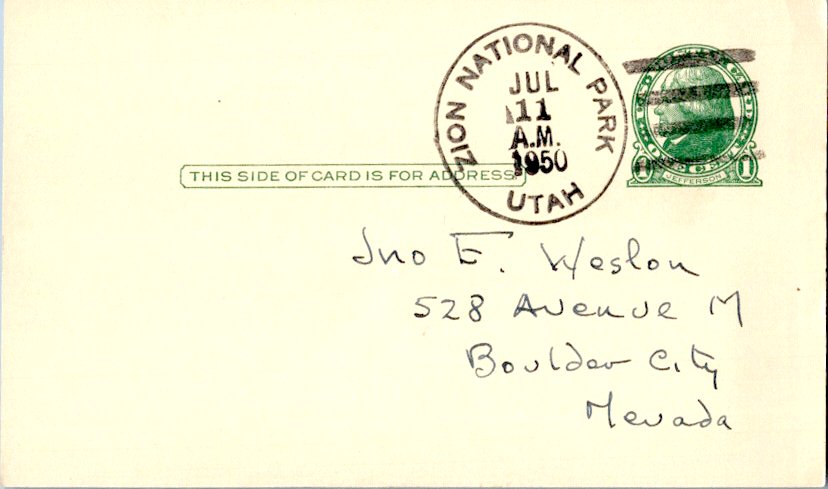 ZION NATIONAL PARK
JUL
11
A.M.
1950
UTAH
ONE CENT
1 JEFFERSON 1
THIS SIDE OF CARD IS FOR ADDRESS
Jno E. Weslon
528 Avenue M
Boulder City
Nevada